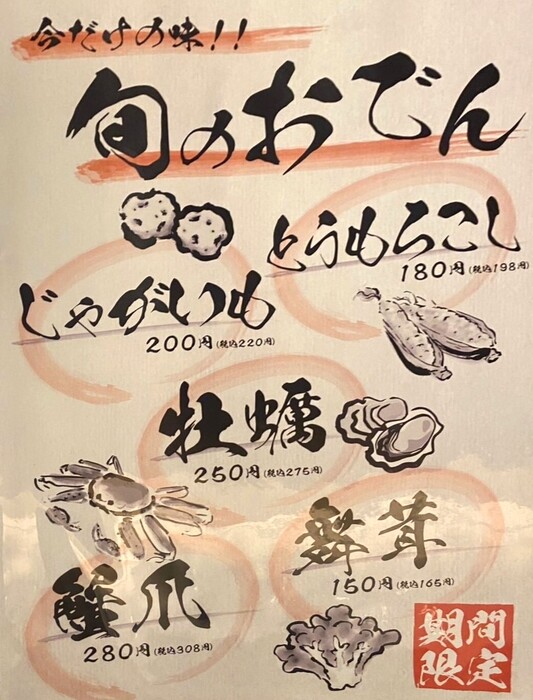 今だけの味!!
旬のおでん
とうもろこし
180円(税込198円)
じゃがいも
200円(税込220円)
牡蠣
250円(税込275円)
舞茸
150円(税込165円)
蟹爪
280円(税込308円)
期間
限定